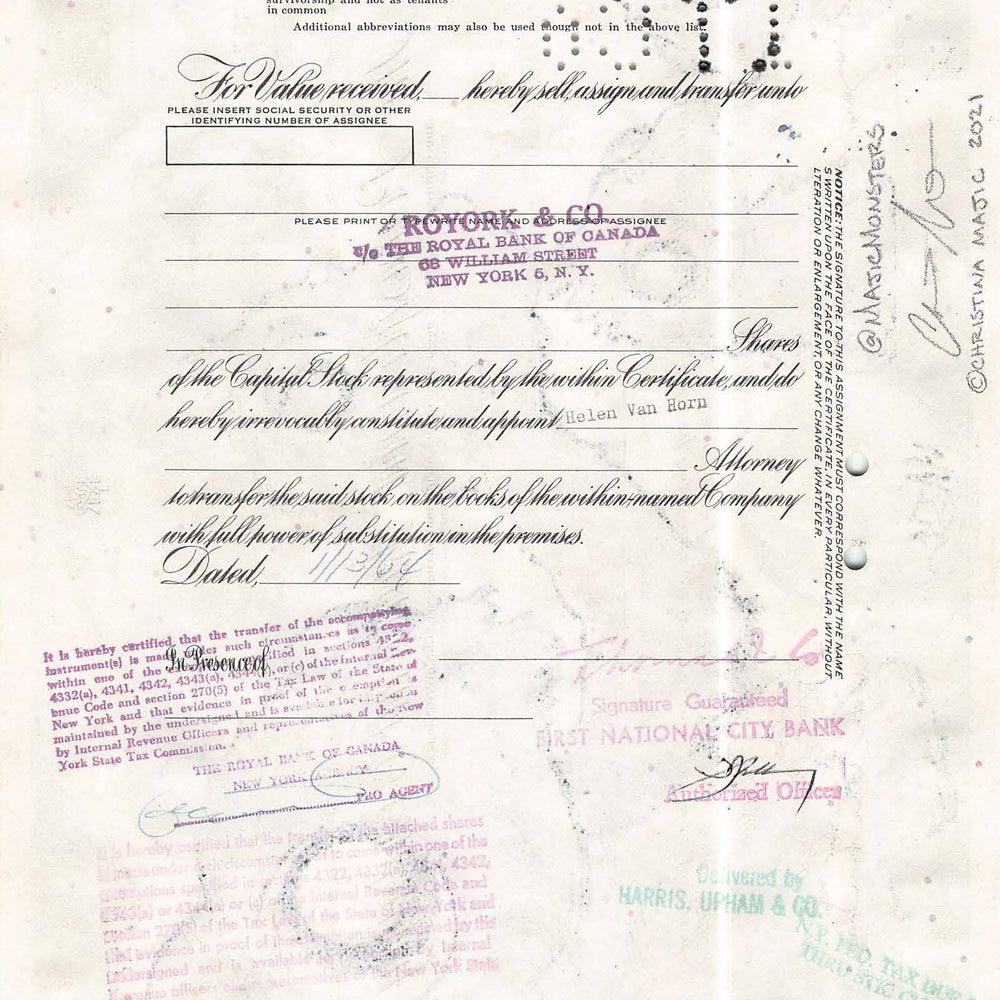 survivorship and not as tenants
in common
Additional abbreviations may also be used though not in the above list.
For Value received, hereby sell, assign and transfer unto
PLEASE INSERT SOCIAL SECURITY OR OTHER
IDENTIFYING NUMBER OF ASSIGNEE
PLEASE PRINT OR TYPEWRITE NAME AND ADDRESS OF ASSIGNEE
ROYORK & CO.
c/o THE ROYAL BANK OF CANADA
68 WILLIAM STREET
NEW YORK 5, N. Y.
Shares
of the Capital Stock represented by the within Certificate, and do
hereby irrevocably constitute and appoint Helen Van Horn
Attorney
to transfer the said stock on the books of the within-named Company
with full power of substitution in the premises.
Dated, 1/13/64
In Presence of
It is hereby certified that the transfer of the accompanying
instrument(s) is made under such circumstances as to come
within one of the in sections 4322,
4332(a), 4341, 4342, 4343(a), or (c) of the Internal Rev-
enue Code and section 270(5) of the Tax Law of the State of
New York and that evidence in proof of the exemption is
maintained by the undersigned and is available for inspection
by Internal Revenue Officers and representatives of the New
York State Tax Commission.
THE ROYAL BANK OF CANADA
NEW YORK AGENCY
PRO AGENT
Signature Guaranteed
FIRST NATIONAL CITY BANK
Authorized Officer
is hereby certified that the transfer of the attached shares
made under such circumstances as to come within one of the
specified in 4322, 4332(a), 4342,
4343(a) or 4344(a) or (c) of the Internal Revenue Code and
section 270(5) of the Tax Law of the State of New York and
that evidence in proof of the exemption is by the
undersigned and is available by Internal
revenue officers and representatives of the New York State
Delivered by
HARRIS, UPHAM & CO.
N.Y. FED. TAX
THRU STK.
NOTICE: THE SIGNATURE TO THIS ASSIGNMENT MUST CORRESPOND WITH THE NAME
S WRITTEN UPON THE FACE OF THE CERTIFICATE, IN EVERY PARTICULAR, WITHOUT
LTERATION OR ENLARGEMENT, OR ANY CHANGE WHATEVER.
@MAJICMONSTERS
©CHRISTINA MAJIC 2021